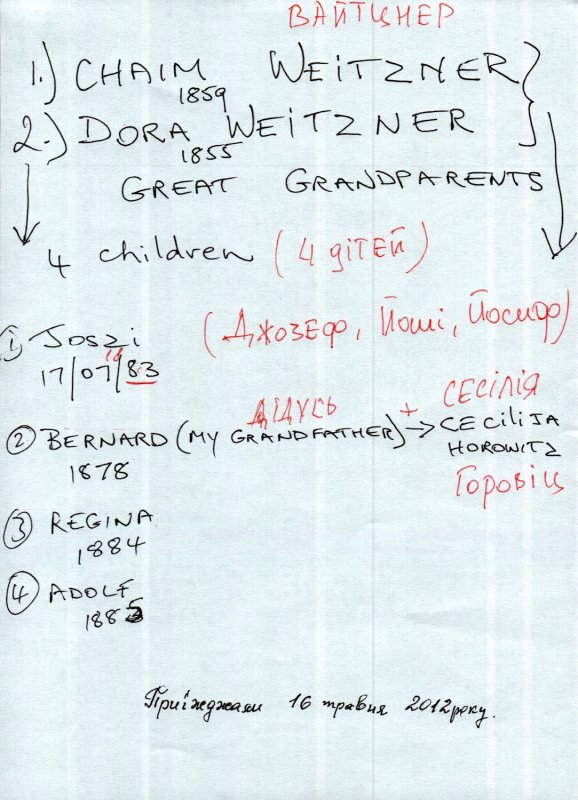 ВАЙТЦНЕР
1.) CHAIM WEITZNER
1859
2.) DORA WEITZNER
1855
GREAT GRANDPARENTS
4 children (4 дітей)
① Joszi (Джозеф, Йоші, Йосиф)
17/07/83
дідусь + СЕСІЛІЯ
② BERNARD (MY GRANDFATHER) → CECILIJA
1878 HOROWITZ
Горовіц
③ REGINA
1884
④ ADOLF
1885
Приїжджали 16 травня 2012 року.